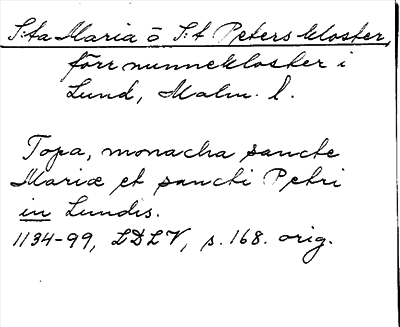 S:ta Maria o S:t Peters kloster,
förr nunnekloster i
Lund, Malm. l.
Topa, monacha sancte
Mariæ et sancti Petri
in Lundis.
1134-99, LDLV, s. 168. orig.